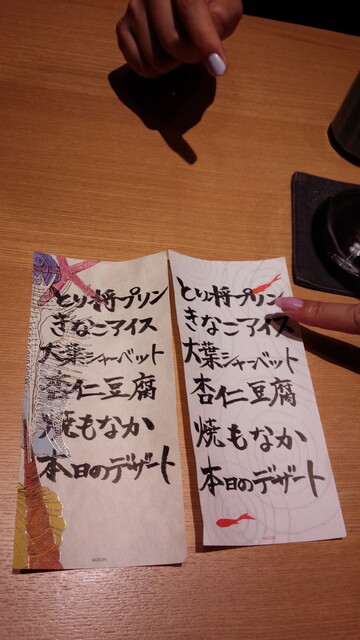 とり将プリン
きなこアイス
大葉シャーベット
杏仁豆腐
焼もなか
本日のデザート
とり将プリン
きなこアイス
大葉シャーベット
杏仁豆腐
焼もなか
本日のデザート